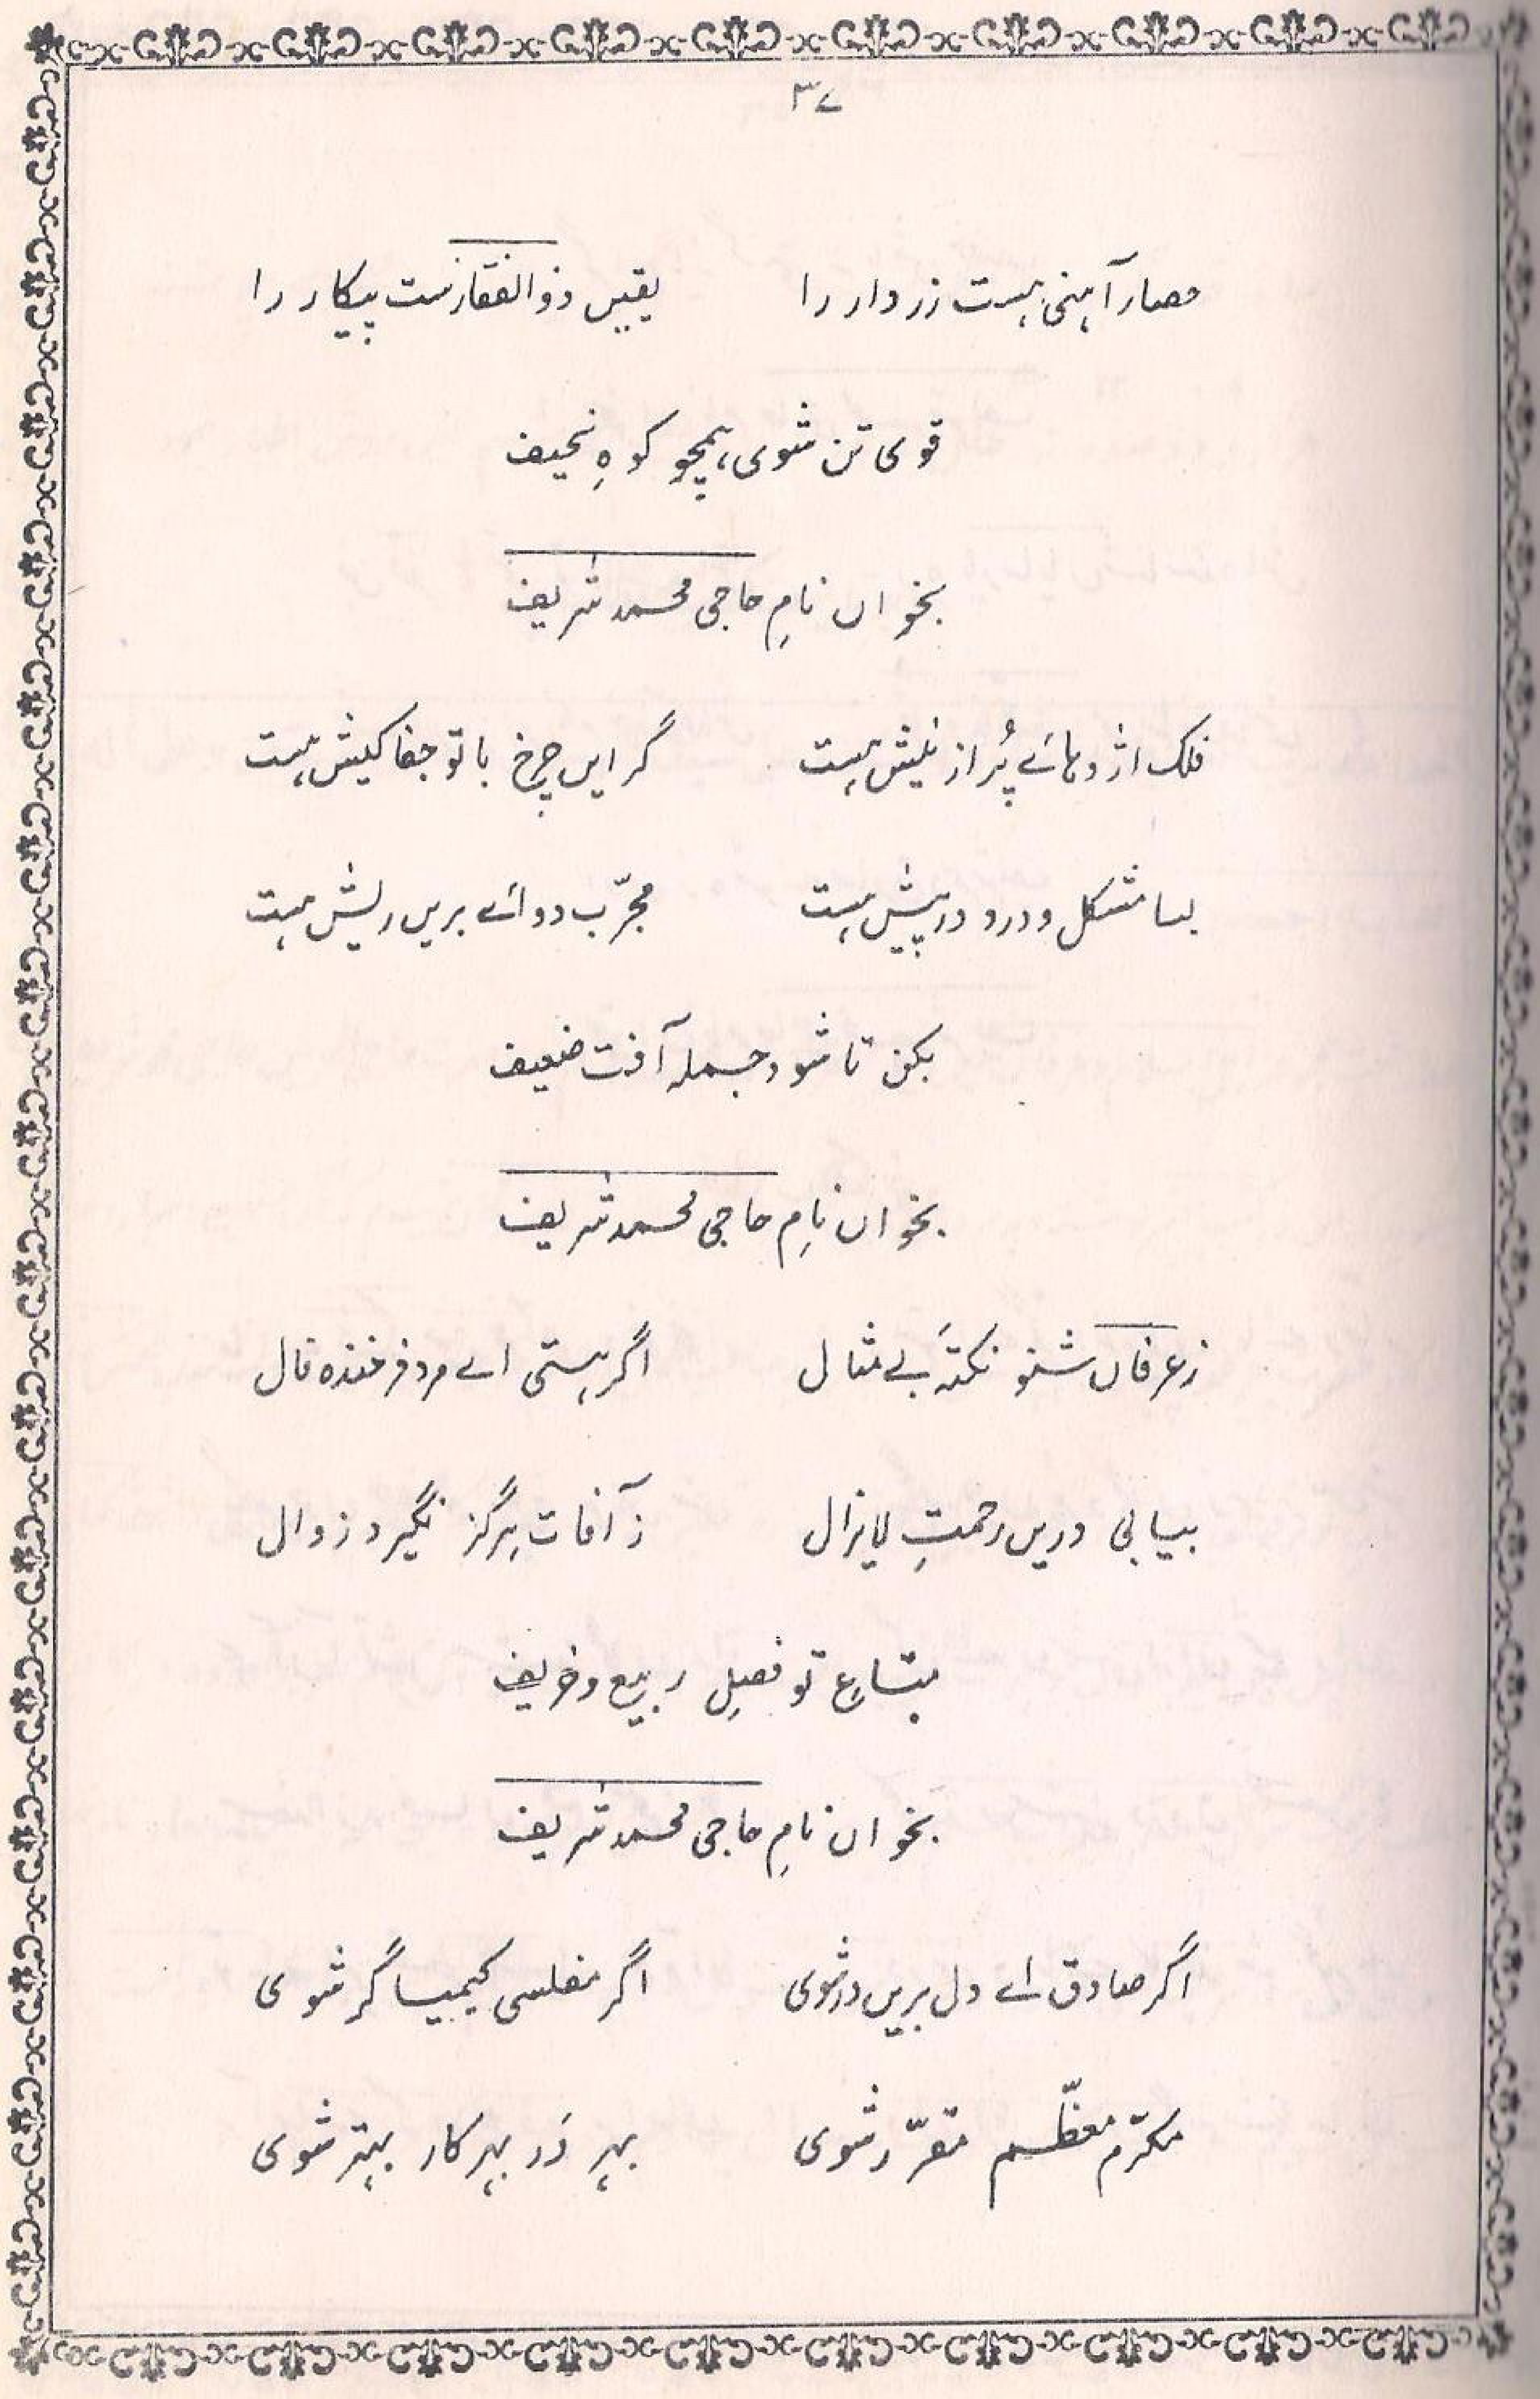 ۳۷
حصار آہنی ہست زردار را یقیں ذوالفقارست پیکار را
قوی تن شوی، ہمچو کوہِ نحیف
بخواں نامِ حاجی محمد شریف
فلک اژدہائے پُر از نیش ہست گر ایں چرخ با تو جفا کیش ہست
بسا مشکل و درد درپیش ہست مجرّب دوائے بریں ریش ہست
بکن تا شود جملہ آفت ضعیف
بخواں نامِ حاجی محمد شریف
ز عرفاں شنو نکتۂ بے مثال اگر ہستی اے مرد فرخندہ فال
بیابی دریں رحمتِ لایزال ز آفات ہرگز نگیرد زوال
متاعِ تو فصلِ ربیع و خریف
بخواں نامِ حاجی محمد شریف
اگر صادق اے دل بریں در شوی اگر مفلسی کیمیا گر شوی
مکرّم معظّم مقرّر شوی بہر دَر بہر کار بہتر شوی